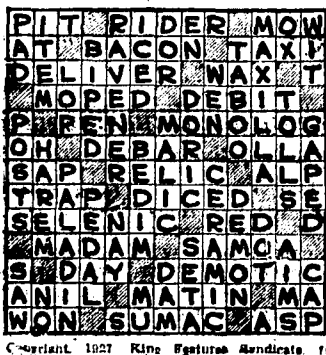 PIT RIDER MOW
AT BACON TAXI
DELIVER WAX T
MOPED DEBIT
P PEN MONOLOG
OH DEBAR OLLA
SAP RELIC ALP
TRAP DICED SE
SELENIC RED D
MADAM SAMOA
S DAY DEMOTIC
ANIL MATIN MA
WON SUMAC ASP
Copyright, 1927 King Features Syndicate,